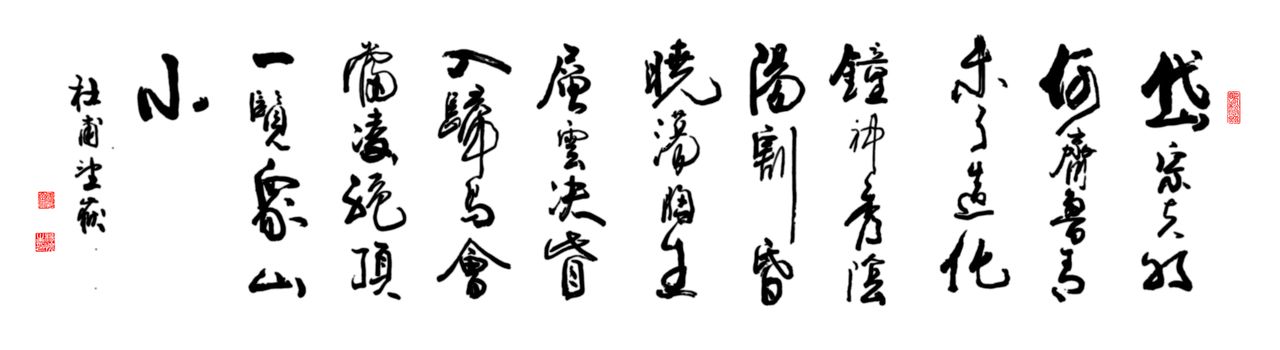 岱宗夫如
何齊魯青
未了造化
鐘神秀陰
陽割昏
曉湯胸生
層雲决眥
入歸鳥會
當凌絕頂
一覽眾山
小
杜甫望嶽